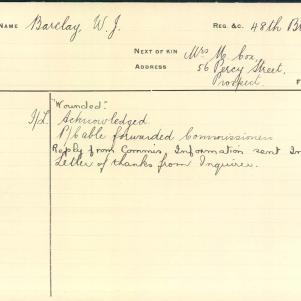 NAME Barclay, W. J. REG. &C. 48th B
NEXT OF KIN Mrs M. Cox,
ADDRESS 56 Percy Street,
Prospect F
"Wounded".
Acknowledged.
P/Cable forwarded Commissioner
Reply from Commis. Information sent In
Letter of thanks from Inquirer.